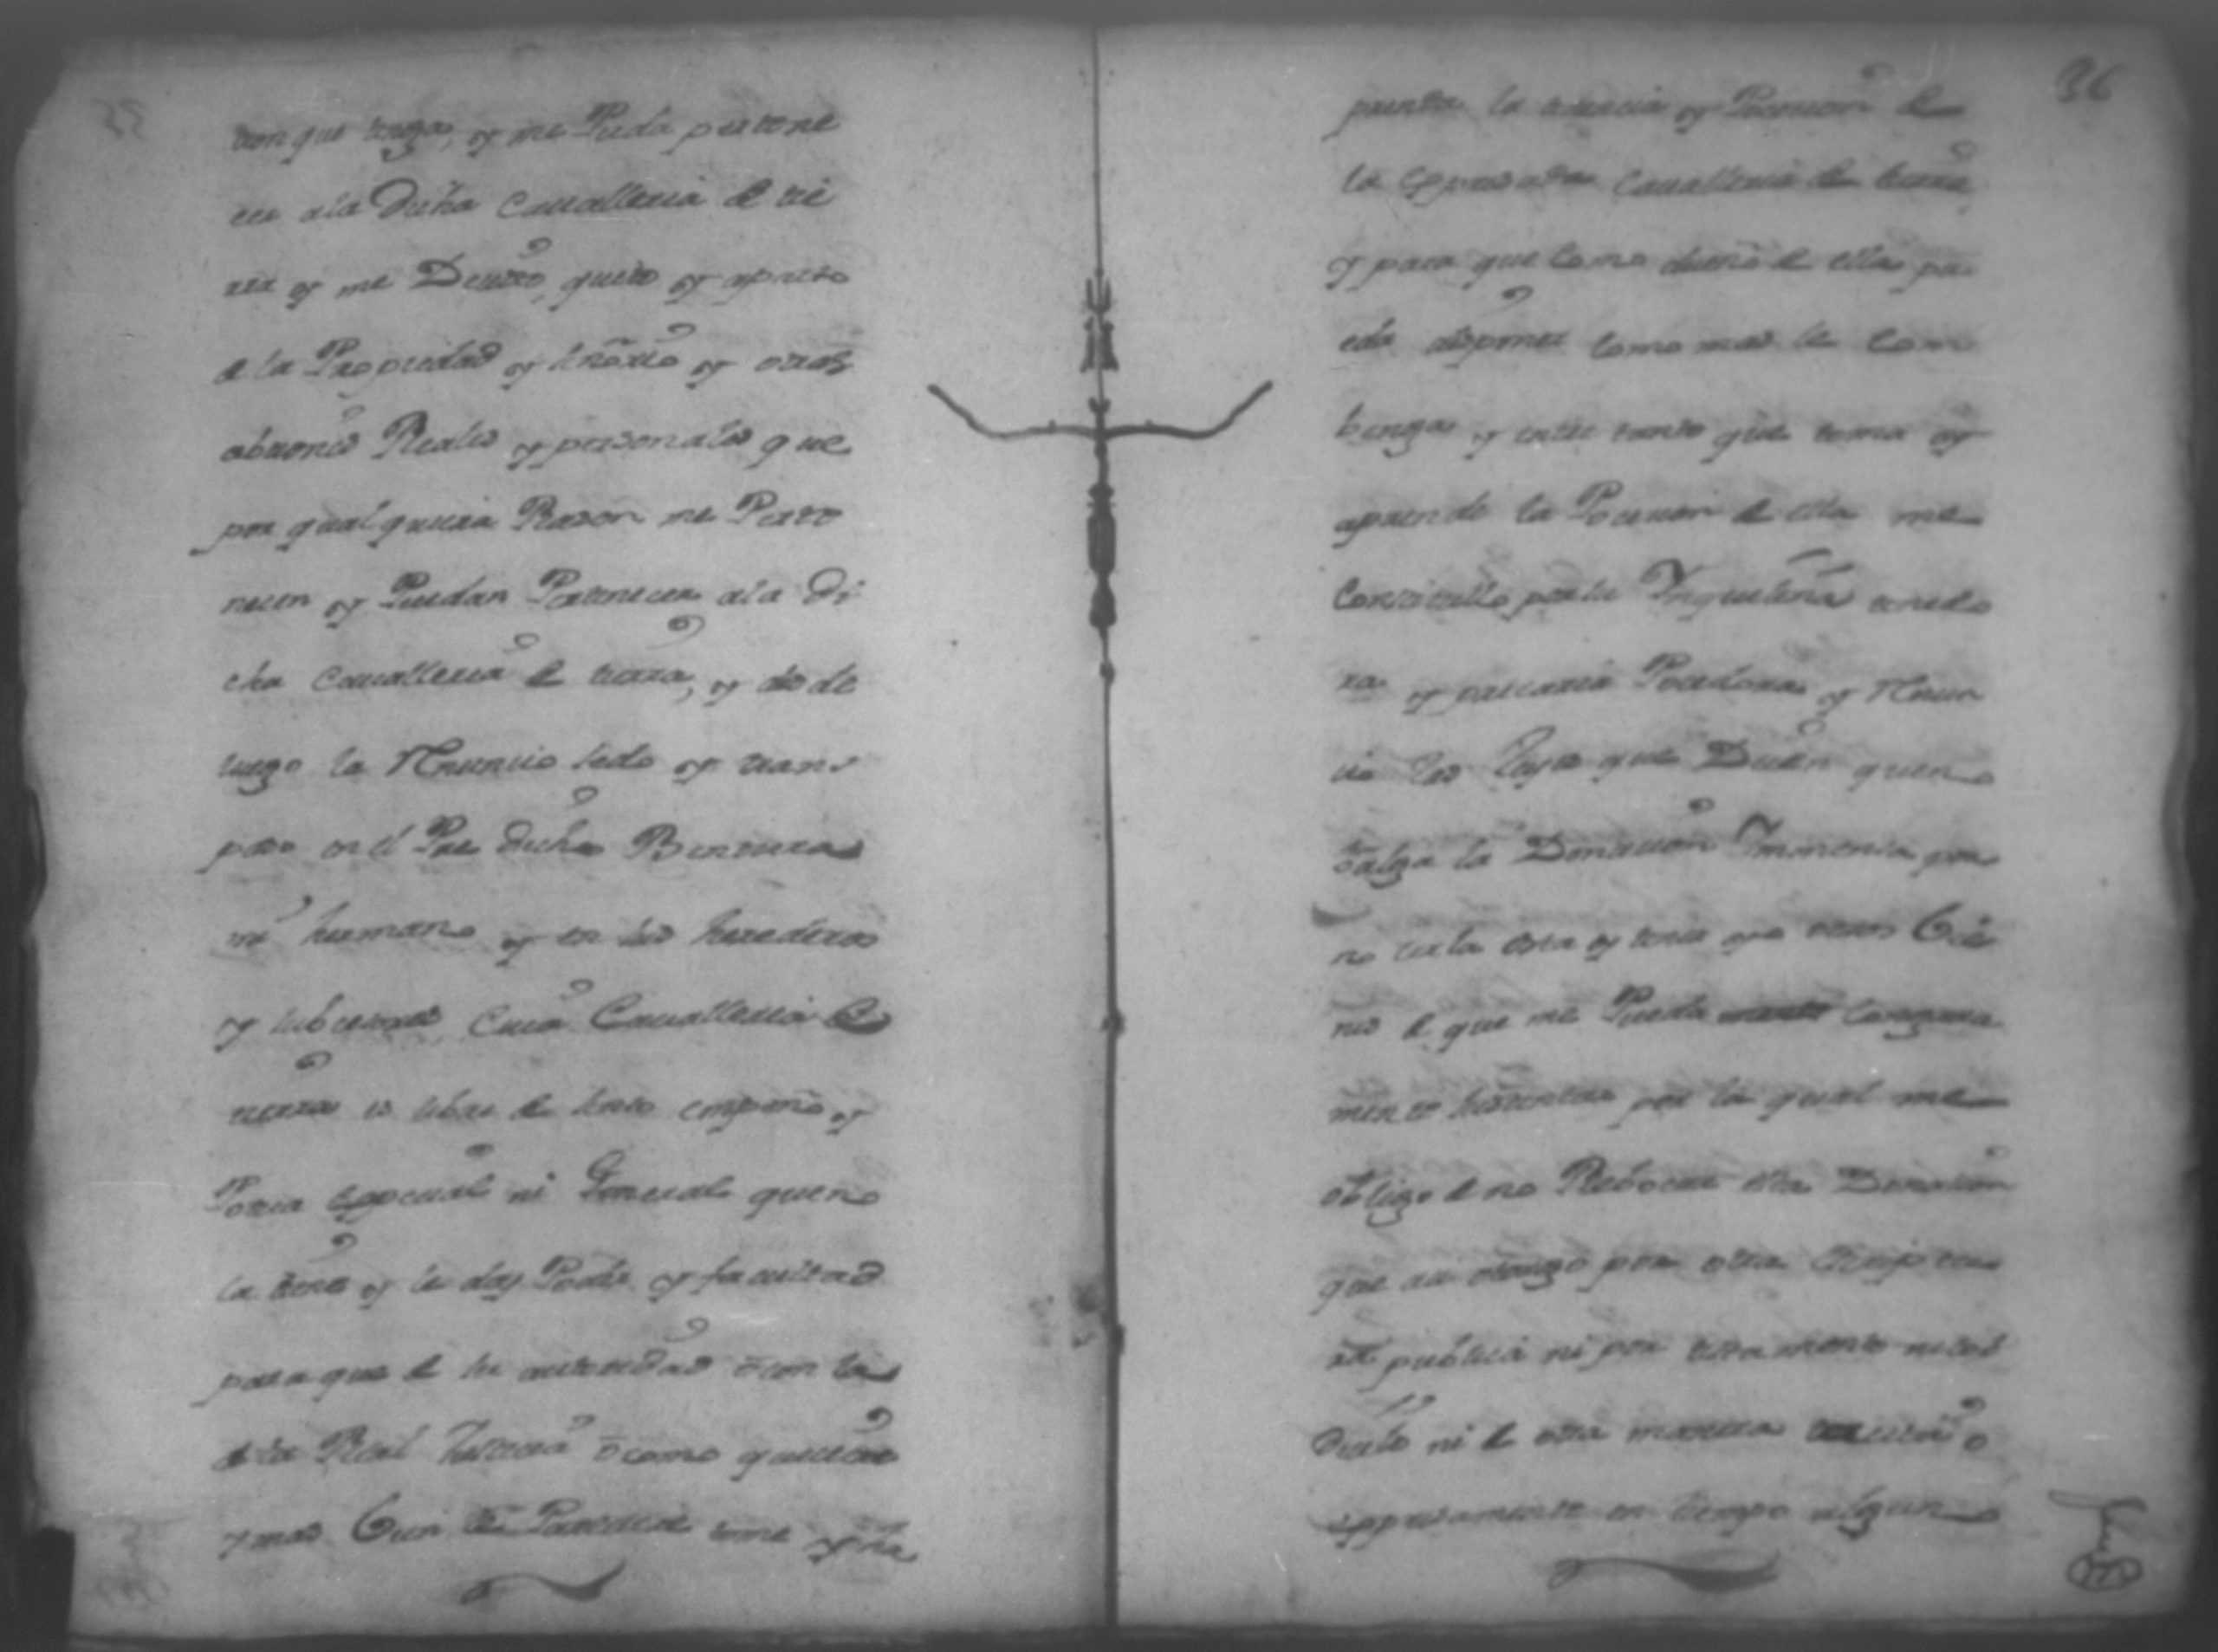 cion que tenga, y me Pueda pertene
cer ala Dicha Cavalleria de tie
rra y me Decisto, quito y aparto
de la Propiedad y señorio y otras
abciones Reales y personales que
por qual quiera Rason me Perte
necen y Puedan Pertenecer ala Di
cha Cavalleria de tierra, y desde
luego la Renuncio sedo y trans
paso en el dicho Bentura
mi hermano y en sus herederos
y subcesores, Cuia Cavalleria de
tierra es libre de senso empeño y
Poteca especial ni General que no
la tiene y le doy Poder y facultad
para que de su autoridad o con la
de la Real Justicia o como quiciere
y mas bien le Paresiere tome y
36
prenda la tenencia y Pocecion de
la expresada Cavalleria de tierra
y para que como dueño de ella pu
eda disponer como mas le com
benga y entre tanto que toma y
aprende la Pocecion de ella me
Constitullo por su Ynquilina tenedo
ra y precaria Poceedora y Renun
cio las leyes que Dicen que no
balga la Donacion Inmensa por
no ser la esta y tener yo otros bie
nes de que me Pueda congrua
mente sustentar por la qual me
obligo de no Rebocar esta Donacion
que asi otorgo por otra Escriptu
ra publica ni por testamento ni cob
dicilo ni de otra manera tacita o
expresamente en tiempo alguno